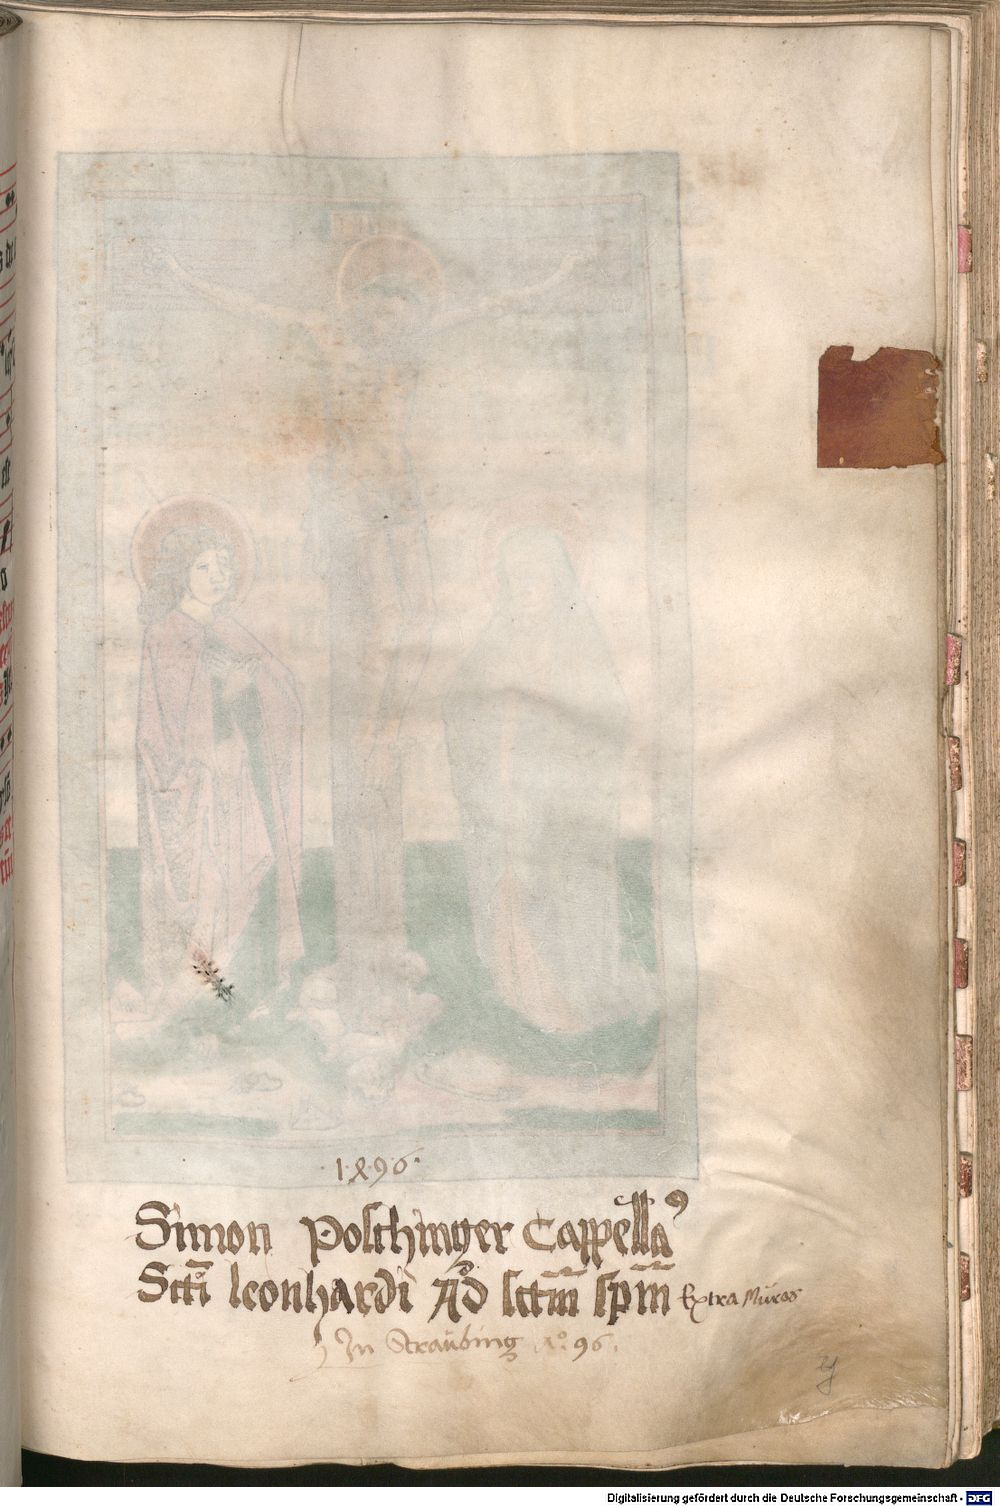 ·1·4·9·6·
Simon Poschinger Cappellaꝰ
Scti leonhardi Ad sctm̅ spm̅ Extra Muros
In Straubing Aº 96.
Digitalisierung gefördert durch die Deutsche Forschungsgemeinschaft - DFG